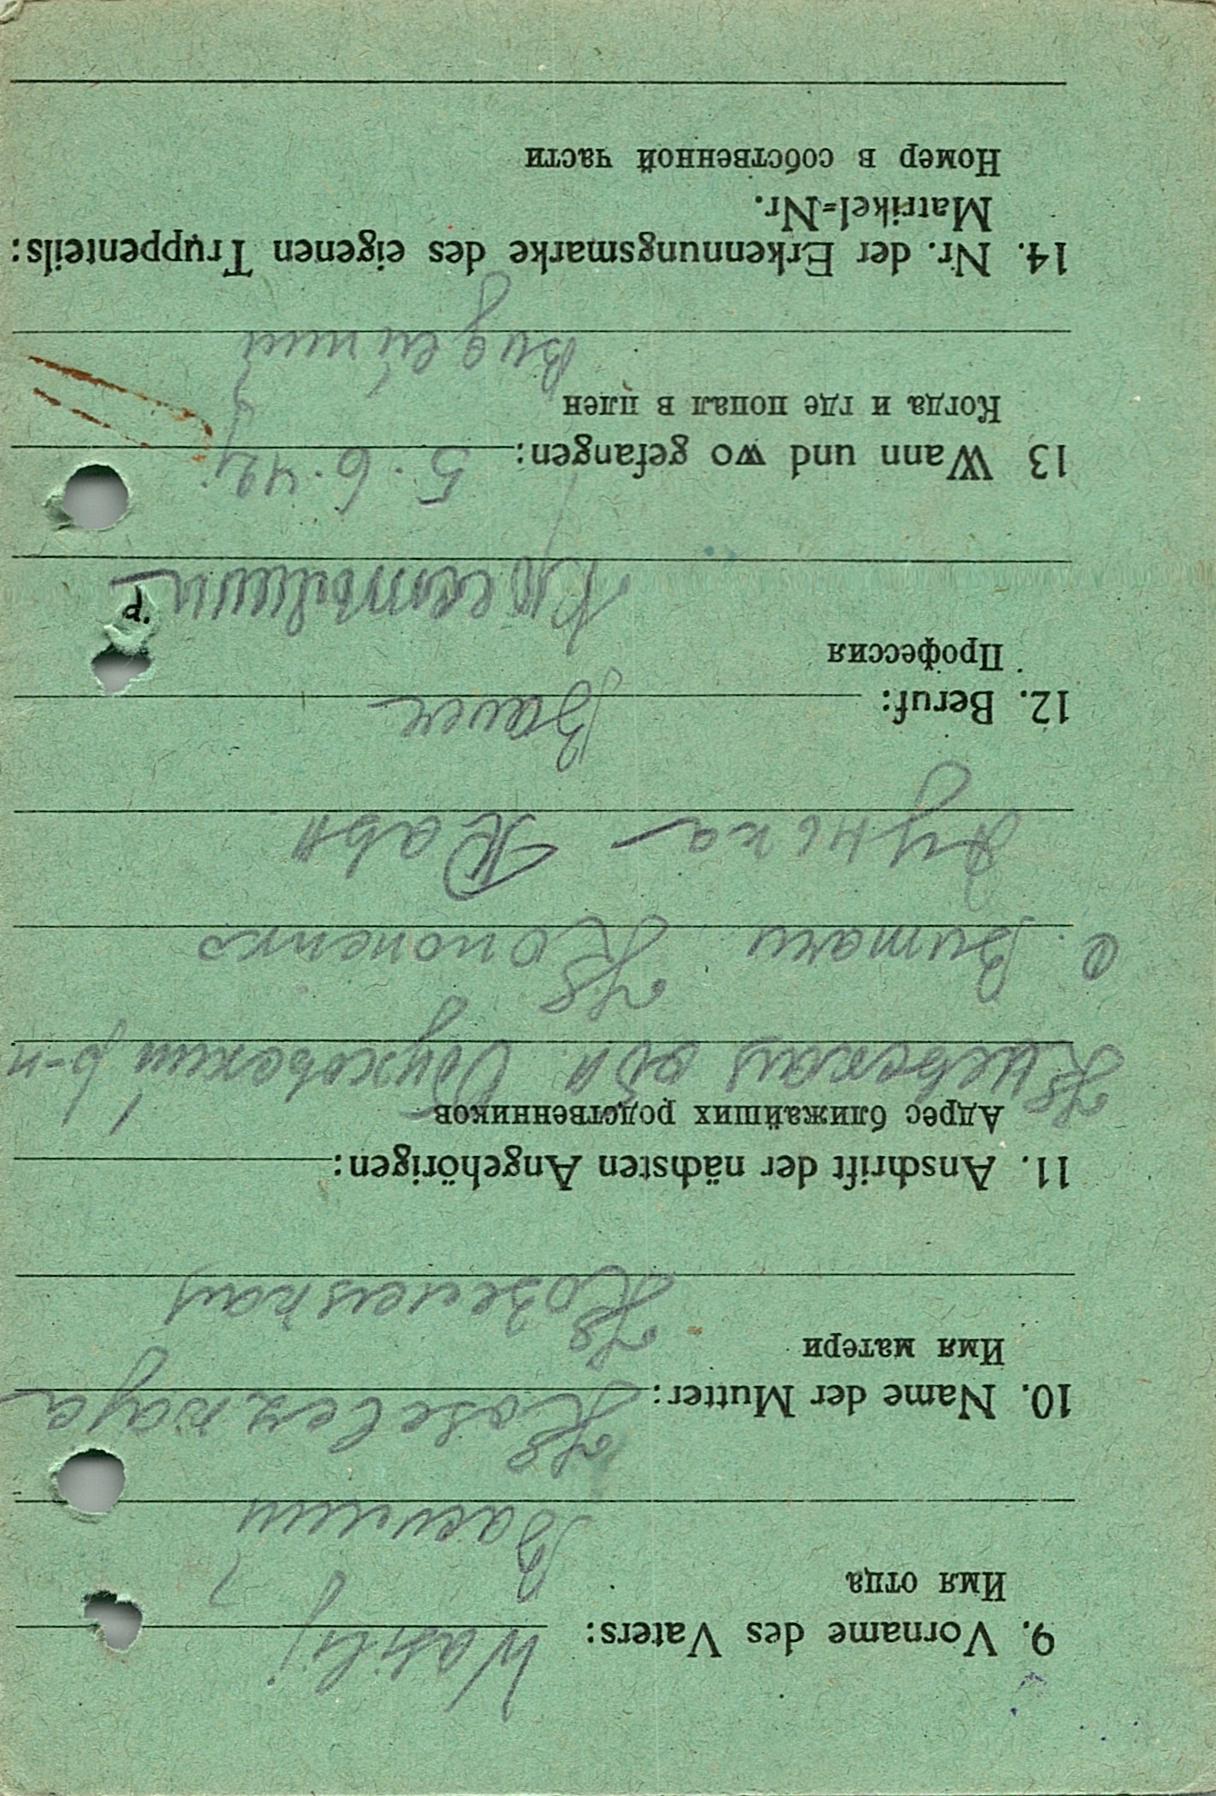 9. Vorname des Vaters: Wasilij
Имя отца
Василий
10. Name der Mutter: Koselezkaja
Имя матери
Козелецкая
11. Anschrift der nächsten Angehörigen:
Адрес ближайших родственников
Киевская обл Обуховский р-н
с. Витачи Кононенко
12. Beruf: Bauer
Профессия
d.
13 Wann und wo gefangen: 5.6.42
Когда и где попал в плен
14. Nr. der Erkennungsmarke des eigenen Truppenteils:
Matrikel=Nr.
Номер в собственной части